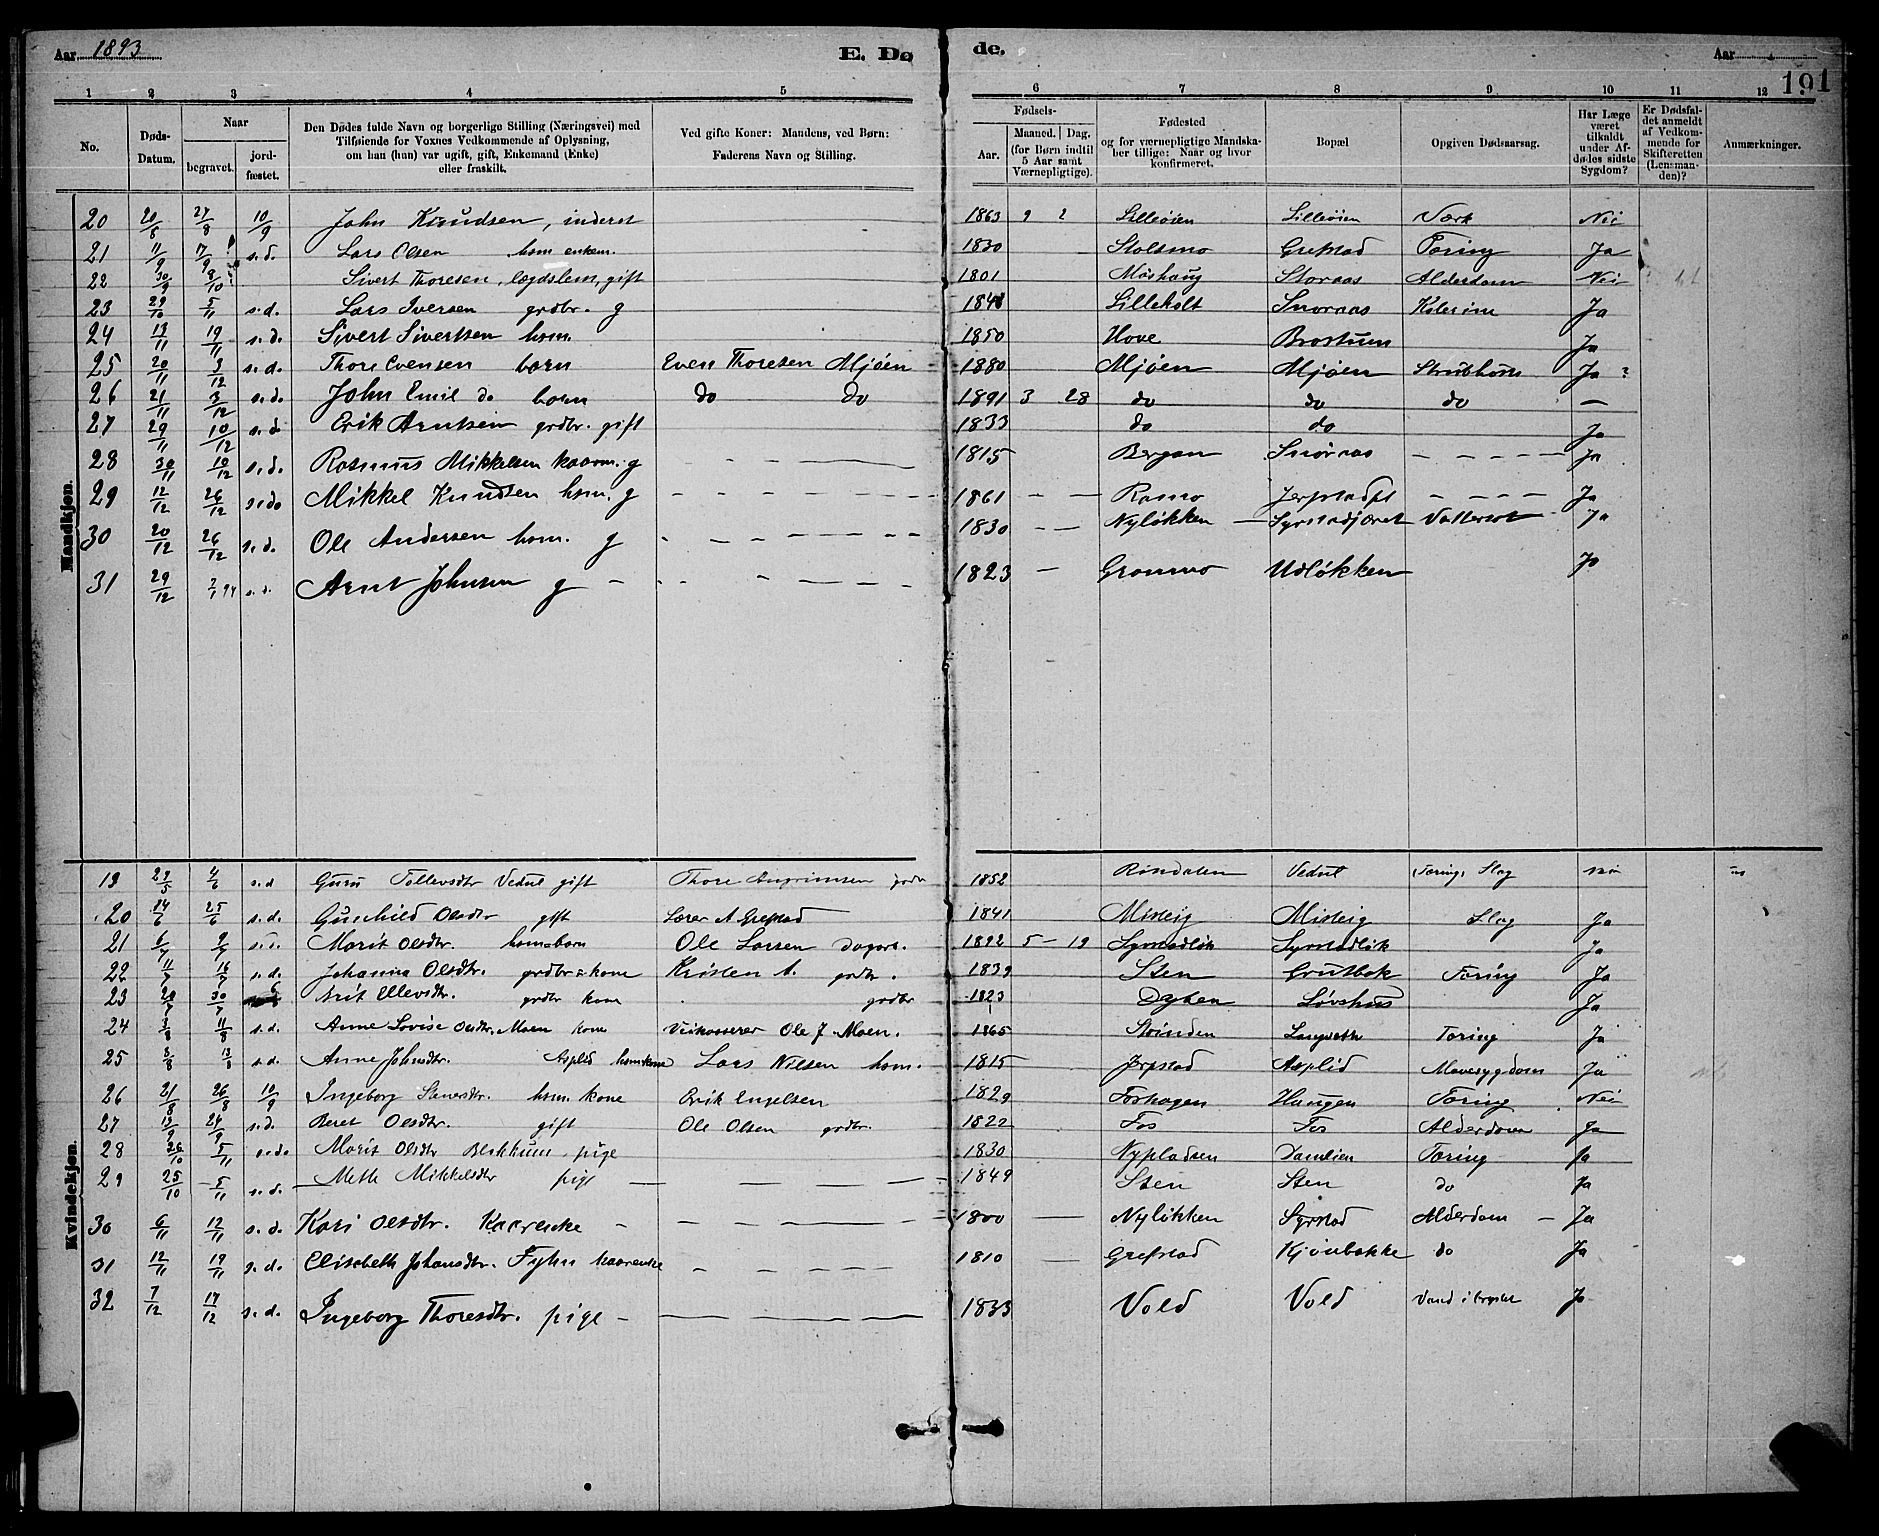 Aar 1893 E. Døde. Aar 191
1 2 3 4 5 6 7 8 9 10 11 12
No. Døds-Datum. Naar begravet. jordfæstet. Den Dødes fulde Navn og borgerlige Stilling (Næringsvei) med Tilføiende for Voxnes Vedkommende af Oplysning, om han (hun) var ugift, gift, Enkemand (Enke) eller fraskilt. Ved gifte Koner: Mandens, ved Børn: Faderens Navn og Stilling. Fødsels- Aar. Maaned. Dag. (for Børn indtil 5 Aar samt Værnepligtige). Fødested og for værnepligtige Mandskaber tillige: Naar og hvor konfirmeret. Bopæl Opgiven Dødsaarsag. Har Læge været tilkaldt under Afdødes sidste Sygdom? Er Dødsfaldet anmeldt af Vedkommende for Skifteretten (Lensmanden)? Anmærkninger.
Mandkjøn.
20 20/8 27/8 10/9 John Knudsen, inderst 1863 9 2 Lilleøien Lilleøien Værk Nei
21 11/9 17/9 s.d. Lars Olsen hsm enkem. 1830 Stolsmo Grefstad Tæring Ja
22 30/9 8/10 Sivert Thoresen, lægdslem, gift 1801 Moshaug Storaas Alderdom Nei
23 29/10 5/11 s.d. Lars Iversen grdbr. g 1848 Lilleholt Snoraas Kolerine Ja
24 13/11 19/11 s.d. Sivert Sivertsen hsm. 1850 Hove Brostuen Ja
25 20/11 3/12 s.d. Thore Evensen barn Even Thoresen Mjøen 1880 Mjøen Mjøen Strubhoste Ja ?
26 21/11 3/12 s.d. John Emil do barn do do 1891 3 28 do do do —
27 29/11 10/12 s.d. Erik Arntsen grdbr. gift 1833 do do Ja
28 30/11 10/12 s.d. Rasmus Mikkelsen kaarm. g 1815 Bergan Snoraas Ja
29 12/12 26/12 s.d. Mikkel Knudsen hsm. g 1861 Rasmo Jerpstadpl Ja
30 20/12 26/12 s.d. Ole Andersen hsm. g 1830 Nyløkken Syrstadjæret Vattersot Ja
31 29/12 7/1 94 s.d. Arnt Johnsen g 1823 Gronmo Udløkken Ja
Kvindekjøn.
19 29/5 4/6 s.d Guru Tollevsdtr Vedul gift Thore Angrimsen grdbr 1852 Røndalen Vedul Tæring, Slag Nei
20 14/6 25/6 s.d. Gunhild Olsdtr gift Lærer A Grefstad 1841 Misteig Misteig Slag Ja
21 6/7 9/7 s.d. Marit Olsdtr. hsmsbarn Ole Larsen dagarb. 1892 5 — 19 Syrstadløk Syrstadløk Ja
22 11/7 16/7 s.d. Johanna Olsdtr. grdbr kone Kristen A. grdbr. 1839 Sten Grutbak Tæring Ja
23 20/7 30/7 Brit Ellevsdtr. grdbr kone grdbr 1823 Dyben Løvshus Ja
24 3/8 11/8 s.d. Anne Lovise Olsdtr. Moen kone Veikasserer Ole J. Moen. 1865 Strinden Langsæth Tæring Ja
25 3/8 13/8 s.d. Anne Johnsdtr. Asplid hsmkone Lars Nilsen hsm. 1815 Jerpstad Asplid Mavesygdom Ja
26 21/8 26/8 10/9 Ingeborg Larsdtr. hsm. kone Erik Engelsen 1829 Forhagen Haugen Tæring Nei
27 13/9 24/9 s.d. Beret Olsdtr. gift Ole Olsen grdbr. 1822 Fos Fos Alderdom Ja
28 26/10 5/11 s.d. Marit Olsdtr Blekkum, pige 1830 Nypladsen Damlien Tæring Ja
29 25/10 5/11 s.d. Mette Mikkelsdtr pige 1849 Sten Sten do Ja
30 6/11 12/11 s.d. Kari Olsdtr. Kaarenke 1800 Nyløkken Syrstad Alderdom Ja
31 12/11 19/11 s.d. Elisabeth Johansdtr. Fyhn kaarenke 1810 Grefstad Kjønbakke do Ja
32 7/12 17/12 s.d. Ingeborg Thoresdtr. pige 1833 Vold Vold Vand i brystet Ja